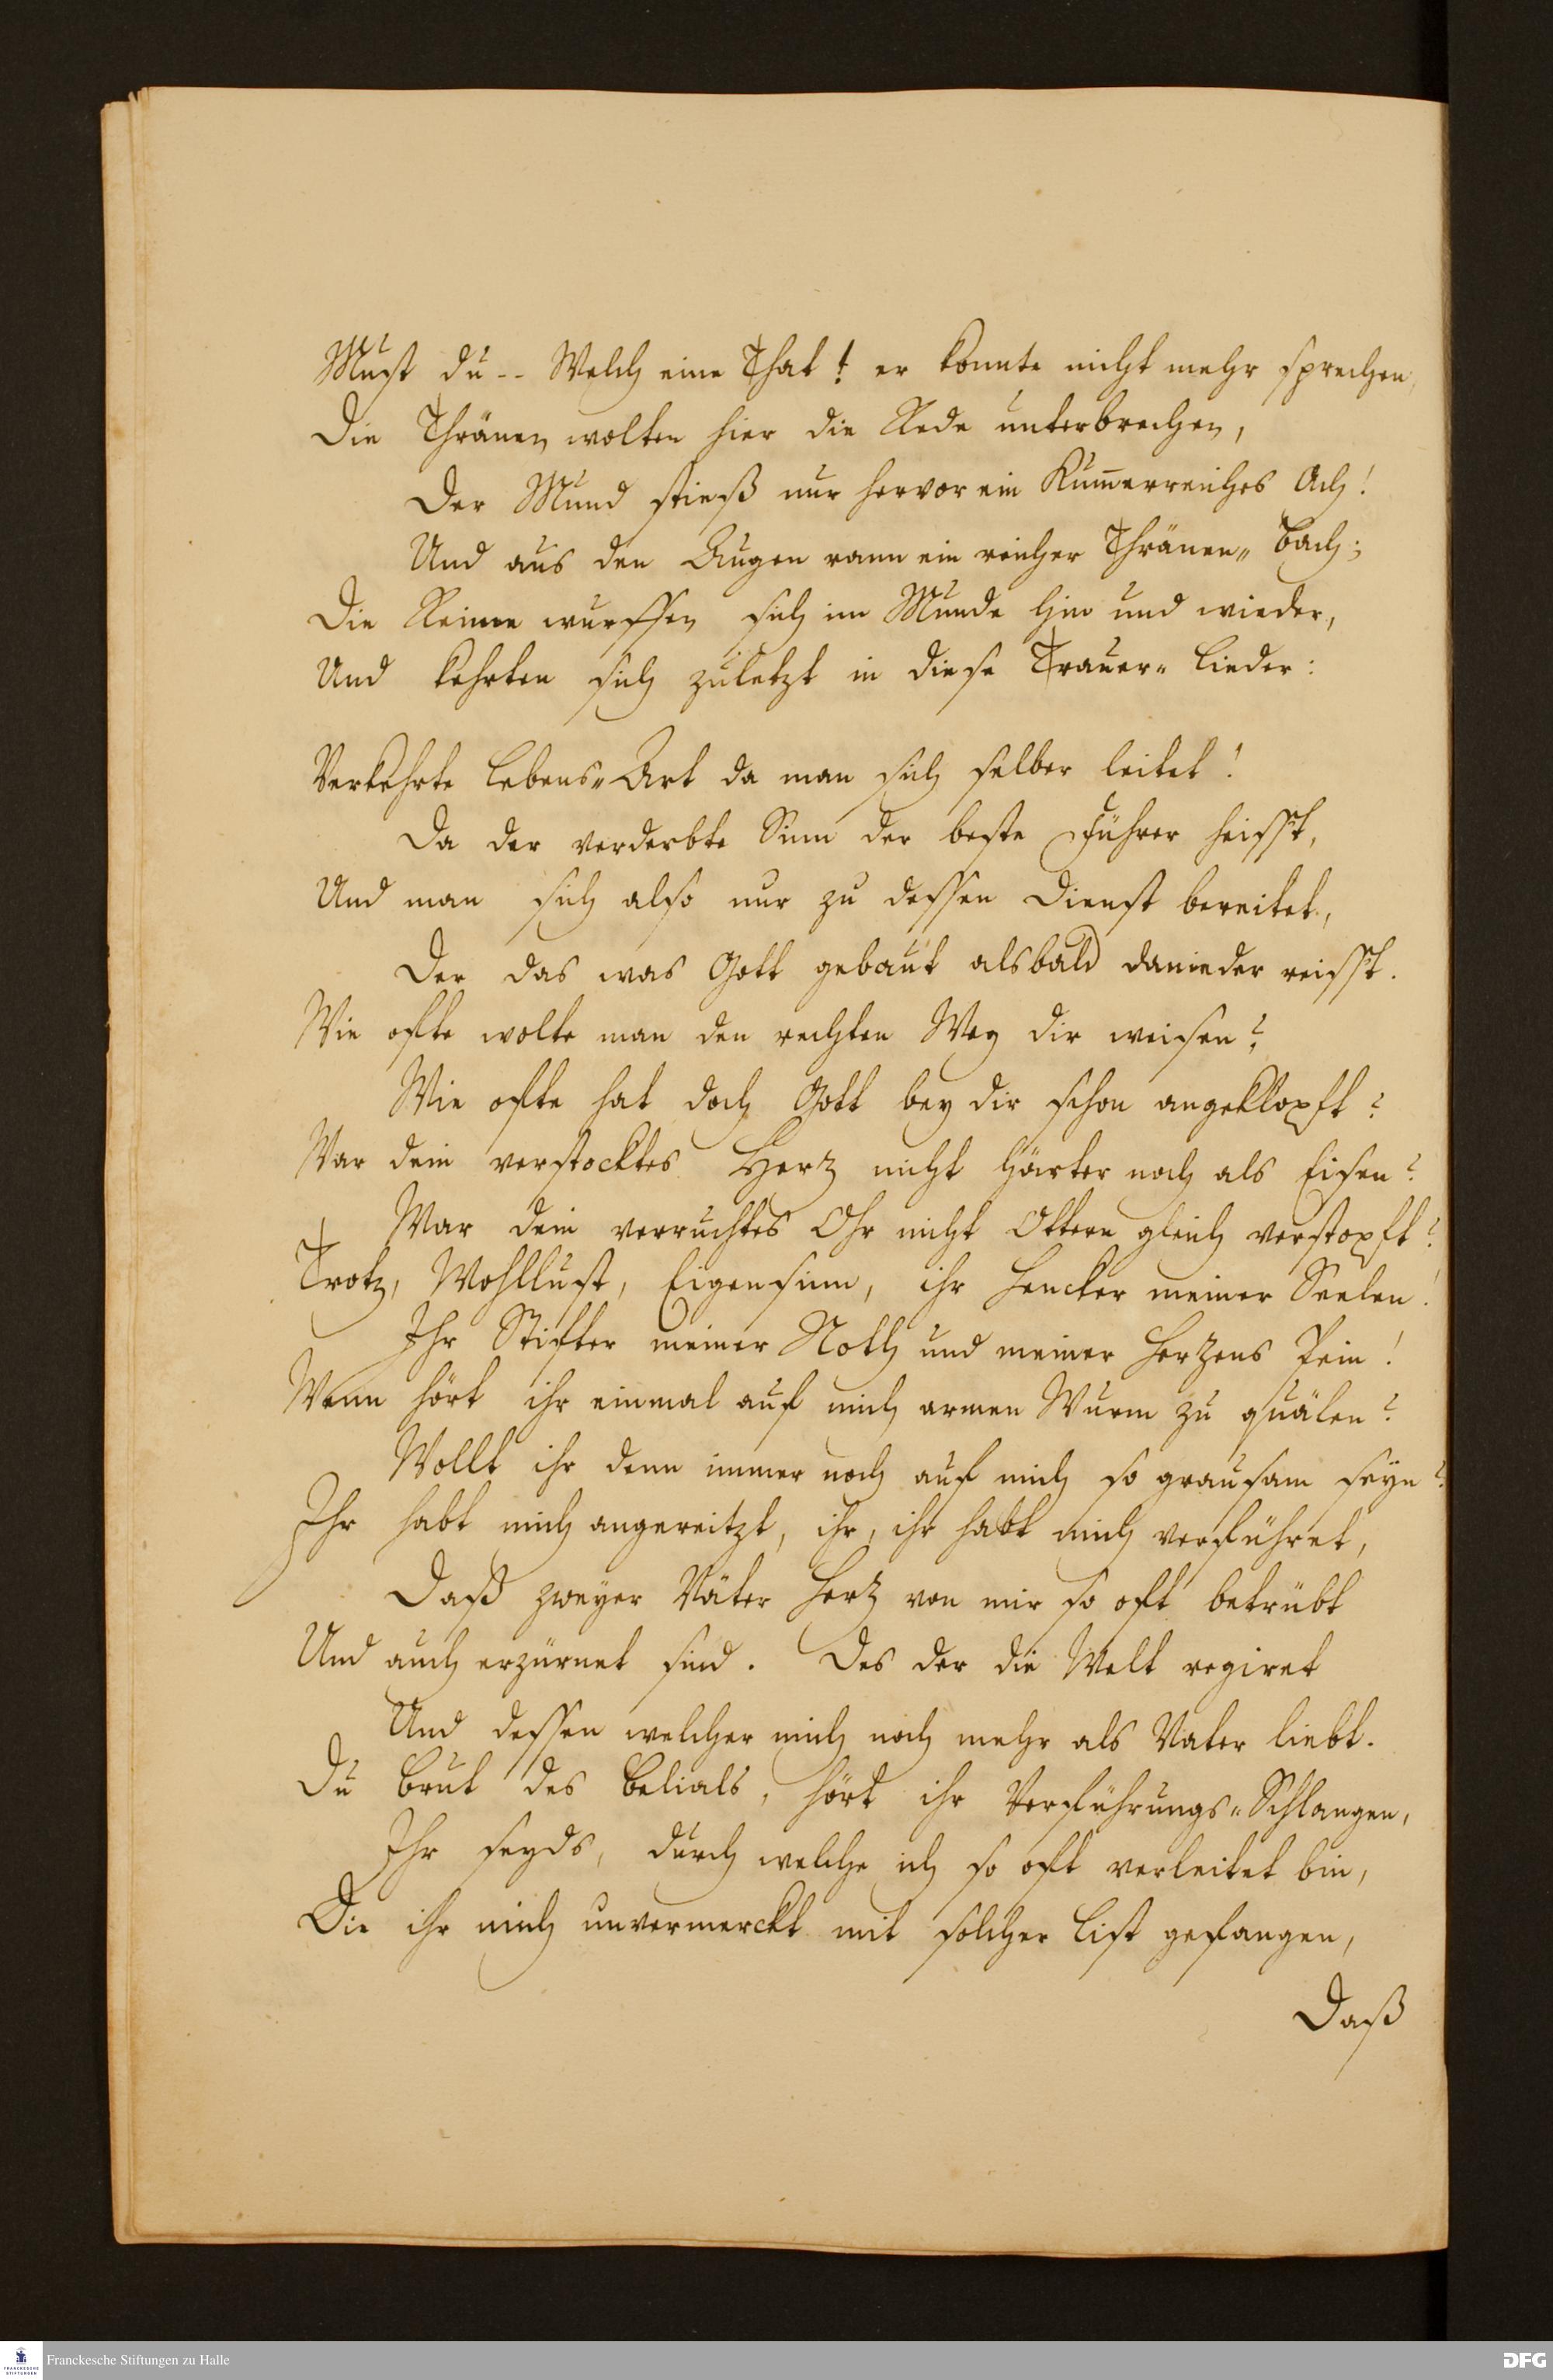 Must du -- Welch eine That! er konnte nicht mehr sprechen,
Die Thränen wolten hier die Rede unterbrechen,
Der Mund stieß nur hervor ein Kum̅erreiches Ach!
Und aus den Augen rann ein reicher Thränen„ Bach;
Die Reime wurffen sich im Munde hin und wieder,
Und kehrten sich zuletzt in diese Trauer„ Lieder:
Verkehrte Lebens„ Art da man sich selber leitet!
Da der verderbte Sinn der beste Führer heisst,
Und man sich also nur zu dessen Dienst bereitet,
Der das was Gott gebaut alsbald danieder reisst.
Wie ofte wolte man den rechten Weg dir weisen?
Wie ofte hat doch Gott bey dir schon angeklopft?
War dein verstocktes Hertz nicht härter noch als Eisen?
War dein verruchtes Ohr nicht Ottern gleich verstopft?
Trotz, Wohllust, Eigensinn, ihr Hencker meiner Seelen!
Ihr Stifter meiner Noth und meiner Hertzens Pein!
Wenn hört ihr einmal auf mich armen Wurm zu quälen?
Wollt ihr denn immer noch auf mich so grausam seyn?
Ihr habt mich angereitzt, ihr, ihr habt mich verführet,
Daß zweyer Väter Hertz von mir so oft betrübt
Und auch erzürnet sind. Des der die Welt regiret
Und dessen welcher mich noch mehr als Vater liebt.
Du Brut des Belials, hört ihr Verführungs„ Schlangen,
Ihr seyds, durch welche ich so oft verleitet bin,
Die ihr mich unvermerckt mit solcher List gefangen,
Daß
Franckesche Stiftungen zu Halle
FRANCKESCHE STIFTUNGEN
DFG